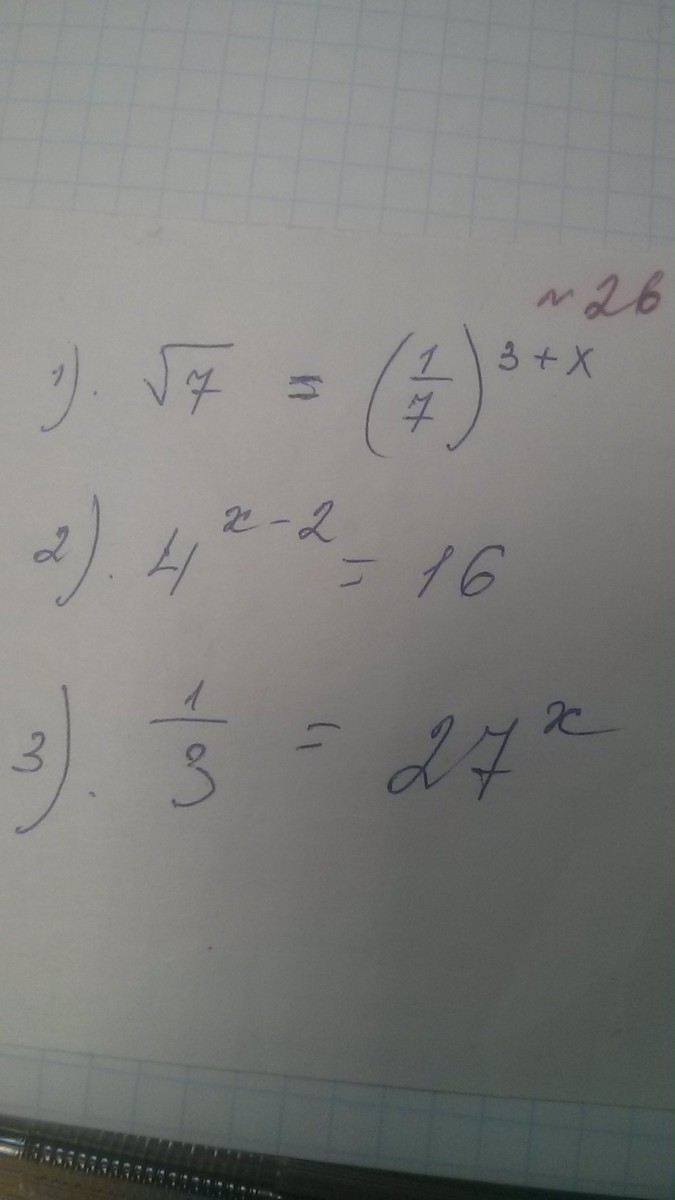 ~ 26
1). √7 = (1/7)^(3+x)
2). 4^(x-2) = 16
3). 1/3 = 27^x